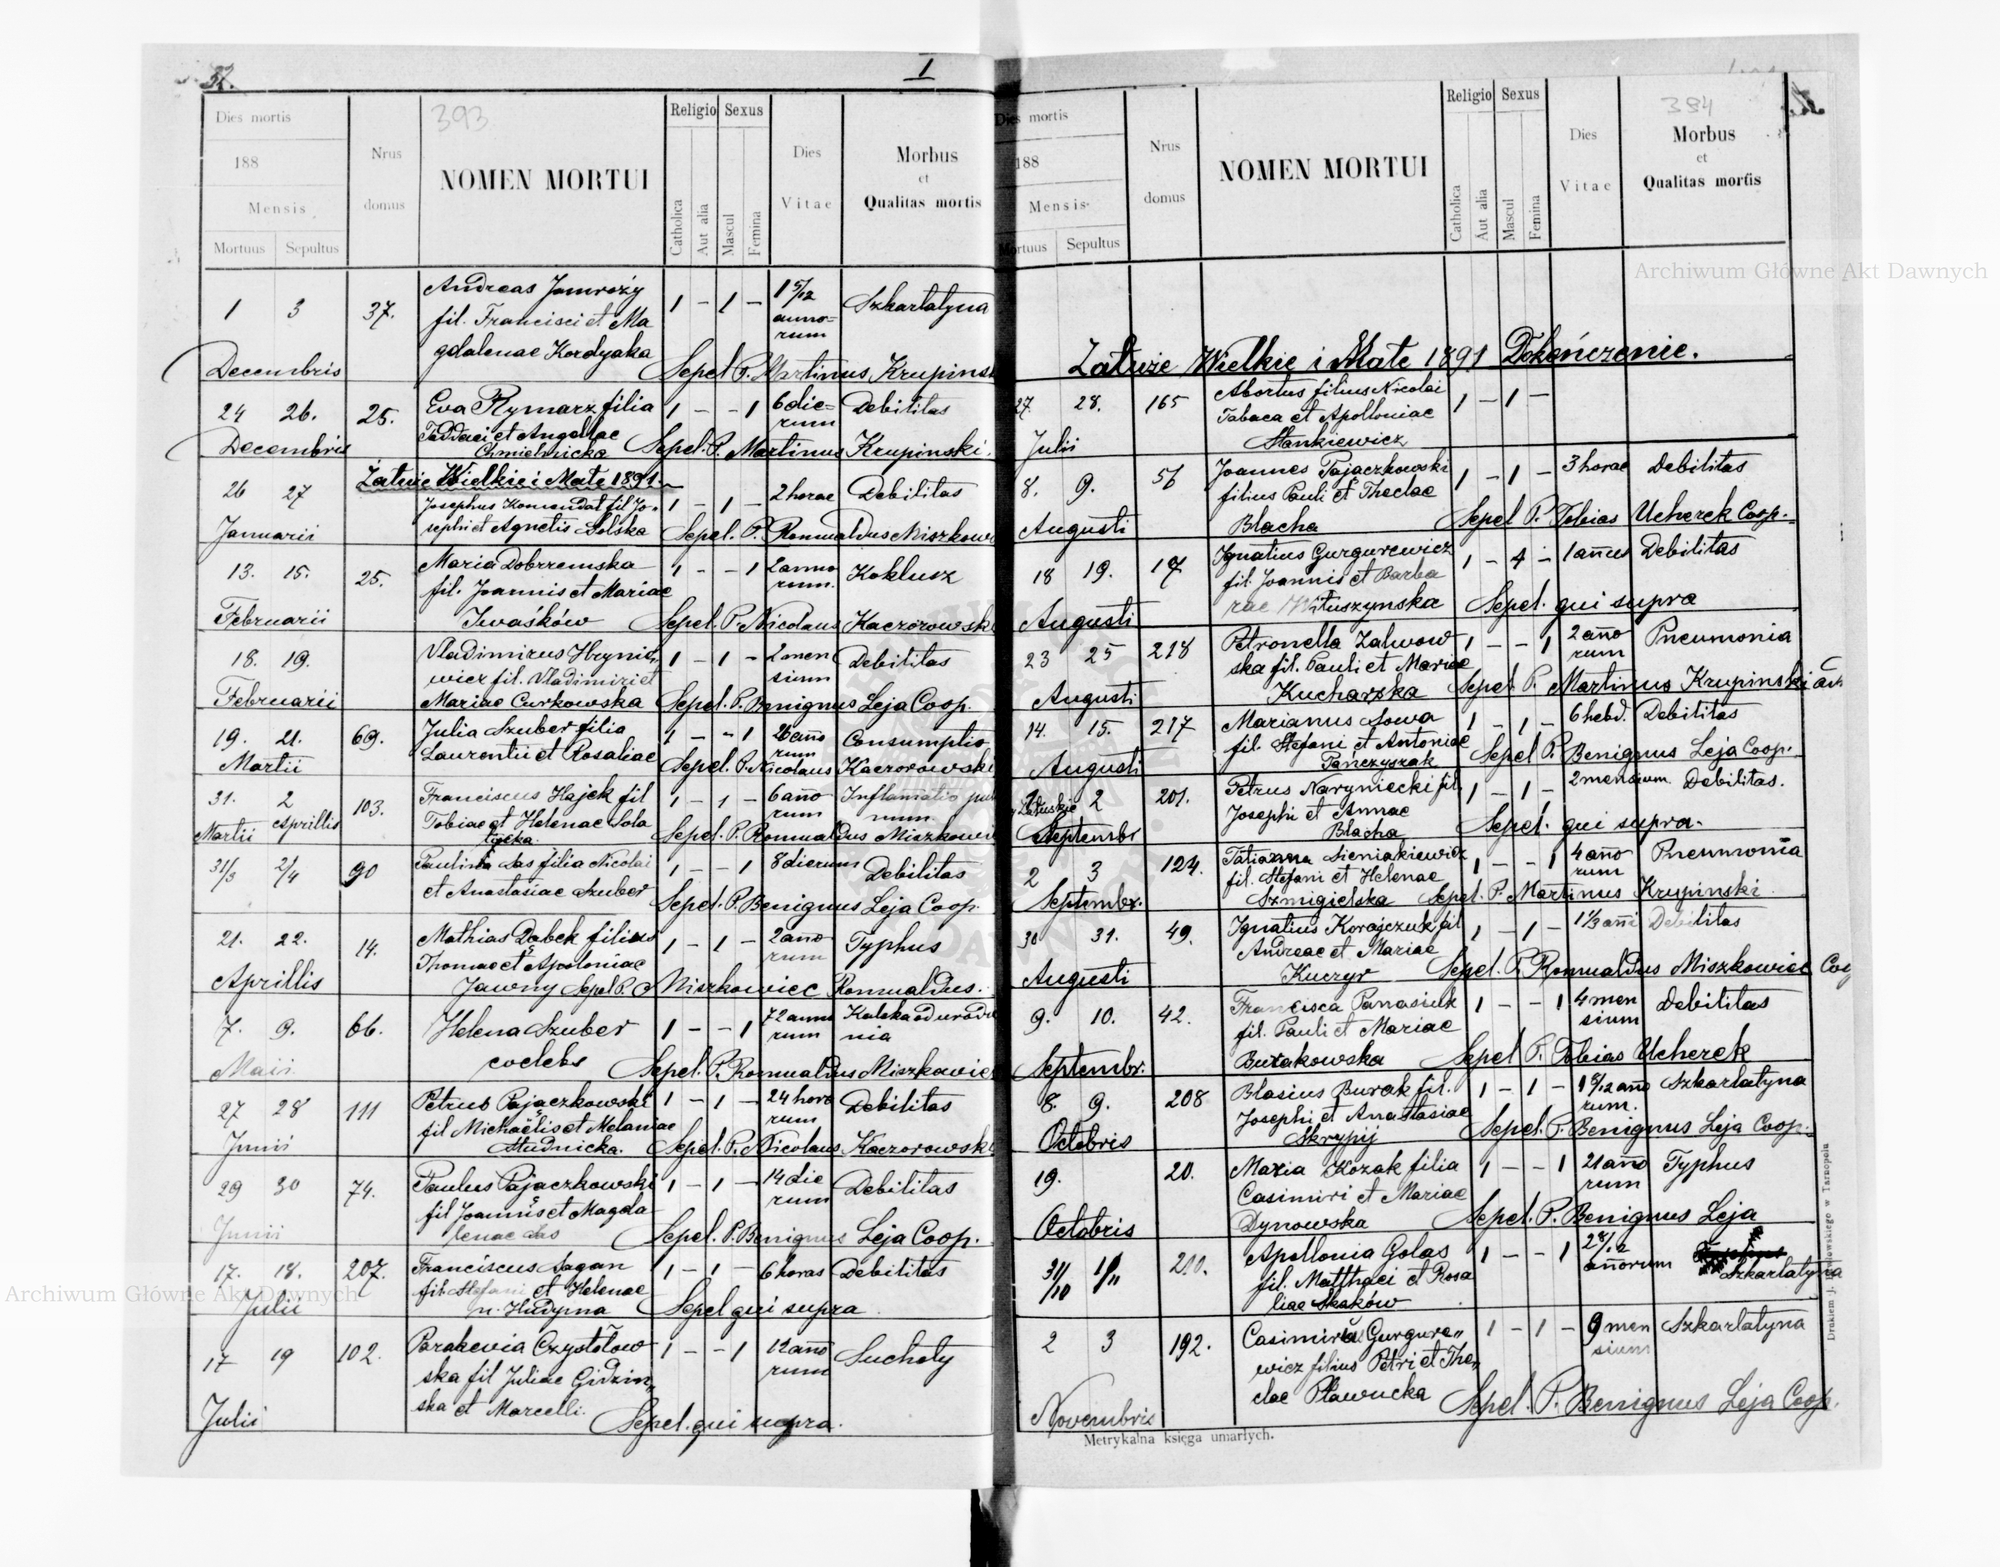 37.
I
Dies mortis
188
Mensis
Mortuus Sepultus
Nrus domus
393
NOMEN MORTUI
Religio
Catholica
Aut alia
Sexus
Mascul
Femina
Dies Vitae
Morbus
et
Qualitas mortis
1 3 37. Andreas Jamroży 1 – 1 – 1 5/12 Szkarlatyna
fil. Francisci et Ma annorum
gdalenae Kordyaka
Decembris Sepel P. Martinus Krupinsk
24 26. 25. Eva Rymarz filia 1 – – 1 6 dierum Debilitas
Taddaei et Angelae
Chmielnicka
Decembris Sepel. P. Martinus Krupinski.
Załuże Wielkie i Małe 1891.
26 27 Josephus Komendat fil Jo- 1 – 1 – 2 horae Debilitas
sephi et Agnetis Solska
Januarii Sepel. P. Romualdus Miszkow
13. 15. 25. Maria Dobrzemska 1 – – 1 2 annorum. Koklusz
fil. Joannis et Mariae
Iwaśków
Februarii Sepel. P. Nicolaus Kaczorowsk
18. 19. Vladimirus Hrynie 1 – 1 – 2 mensium Debilitas
wicz fil. Vladimiri et
Mariae Curkowska
Februarii Sepel. P. Benignus Leja Coop.
19. 21. 69. Julia Szuber filia 1 – – 1 26 añorum Consumptio
Laurentii et Rosaliae
Martii Sepel. P. Nicolaus Kaczorowski
31. 2 103. Franciscus Hajek fil 1 – 1 – 6 añorum Inflamatio pul
Tobiae et Helenae Sola
Martii Aprillis Sepel. P. Romualdus Miszkowi
31/3 2/4 90 Paulina Sas filia Nicolai 1 – – 1 8 dierum Debilitas
et Anastasiae Szuber
Sepel. P. Benignus Leja Coop.
21. 22. 14. Mathias Dąbek filius 1 – 1 – 2 añorum Typhus
Thomae et Apoloniae
Jawny
Aprillis Sepel P. Miszkowiec Romualdus.
7. 9. 66. Helena Szuber 1 – – 1 72 annorum Kaleka od urodze
coelebs nia
Maii Sepel. P. Romualdus Miszkowiec
27 28 111 Petrus Pajączkowski 1 – 1 – 24 horarum Debilitas
fil Michaëlis et Melaniae
Studnicka.
Junii Sepel. P. Nicolaus Kaczorowsk
29 30 74. Paulus Pajączkowski 1 – 1 – 14 dierum Debilitas
fil Joannis et Magda
lenae Sas
Junii Sepel. P. Benignus Leja Coop.
17. 18. 207. Franciscus Sagan 1 – 1 – 6 horas Debilitas
fil. Stefani et Helenae
n. Hudyma
Julii Sepel qui supra
17 19 102. Parakevia Czystołow 1 – – 1 12 añorum Suchoty
ska fil Juliae Gidzin„
ska et Marcelli.
Julii Sepel. qui supra.
Dies mortis
188
Mensis
Mortuus Sepultus
Nrus domus
NOMEN MORTUI
Religio
Catholica
Aut alia
Sexus
Mascul
Femina
Dies Vitae
384
Morbus
et
Qualitas mortis
Załuże Wielkie i Małe 1891 Dokończenie.
27. 28. 165 Abortus filius Nicolai 1 – 1 –
Tabaca et Apolloniae
Stankiewicz
Julii
8. 9. 56 Joannes Pajączkowski 1 – 1 – 3 horae Debilitas
filius Pauli et Theclae
Blacha
Augusti Sepel P. Tobias Ucherek Coop.
18 19. 17 Ignatius Gurgurewicz 1 – 1 – 1 añus Debilitas
fil. Joannis et Barba
rae Wituszynska
Augusti Sepel. qui supra
23 25 218 Petronella Zalwow 1 – – 1 2 añorum Pneumonia
ska fil. Pauli et Mariae
Kucharska
Augusti Sepel P. Martinus Krupinski
14. 15. 217 Marianus Sowa 1 – 1 – 6 hebd. Debilitas
fil. Stefani et Antoniae
Panczyszak
Augusti Sepel P. Benignus Leja Coop.
1 2 201. Petrus Naryniecki fil. 1 – 1 – 2 mensium Debilitas.
Josephi et Annae
Blacha
Septembr Sepel. qui supra.
2 3 124. Tatianna Sieniakiewicz 1 – – 1 4 añorum Pneumonia
fil. Stefani et Helenae
Szmigielska
Septembr. Sepel. P. Martinus Krupinski
30 31. 49. Ignatius Korajczuk fil 1 – 1 – 1 1/2 añi Debilitas
Andreae et Mariae
Kuczyr
Augusti Sepel. P. Romualdus Miszkowiec Coo
9. 10. 42. Francisca Panasiuk 1 – – 1 4 mensium Debilitas
fil. Pauli et Mariae
Burakowska
Septembr. Sepel P. Tobias Ucherek
8. 9. 208 Blasius Burak fil. 1 – 1 – Szkarlatyna
Josephi et Anastasiae
Skrypij
Octobris Sepel. P. Benignus Leja Coop.
19. 20. Maria Kozak filia 1 – – 1 21 añorum Typhus
Casimiri et Mariae
Dynowska
Octobris Sepel. P. Benignus Leja
31/10 1/11 210. Apollonia Golas 1 – – 1 añorum Szkarlatyna
fil. Matthaei et Rosa
liae Skaków
2 3 192. Casimirus Gurgure„ 1 – 1 – 9 mensium Szkarlatyna
wicz filius Petri et The„
clae Pławucka
Novembris Sepel. P. Benignus Leja Coop.
Metrykalna księga umarłych.
Archiwum Główne Akt Dawnych
Archiwum Główne Akt Dawnych